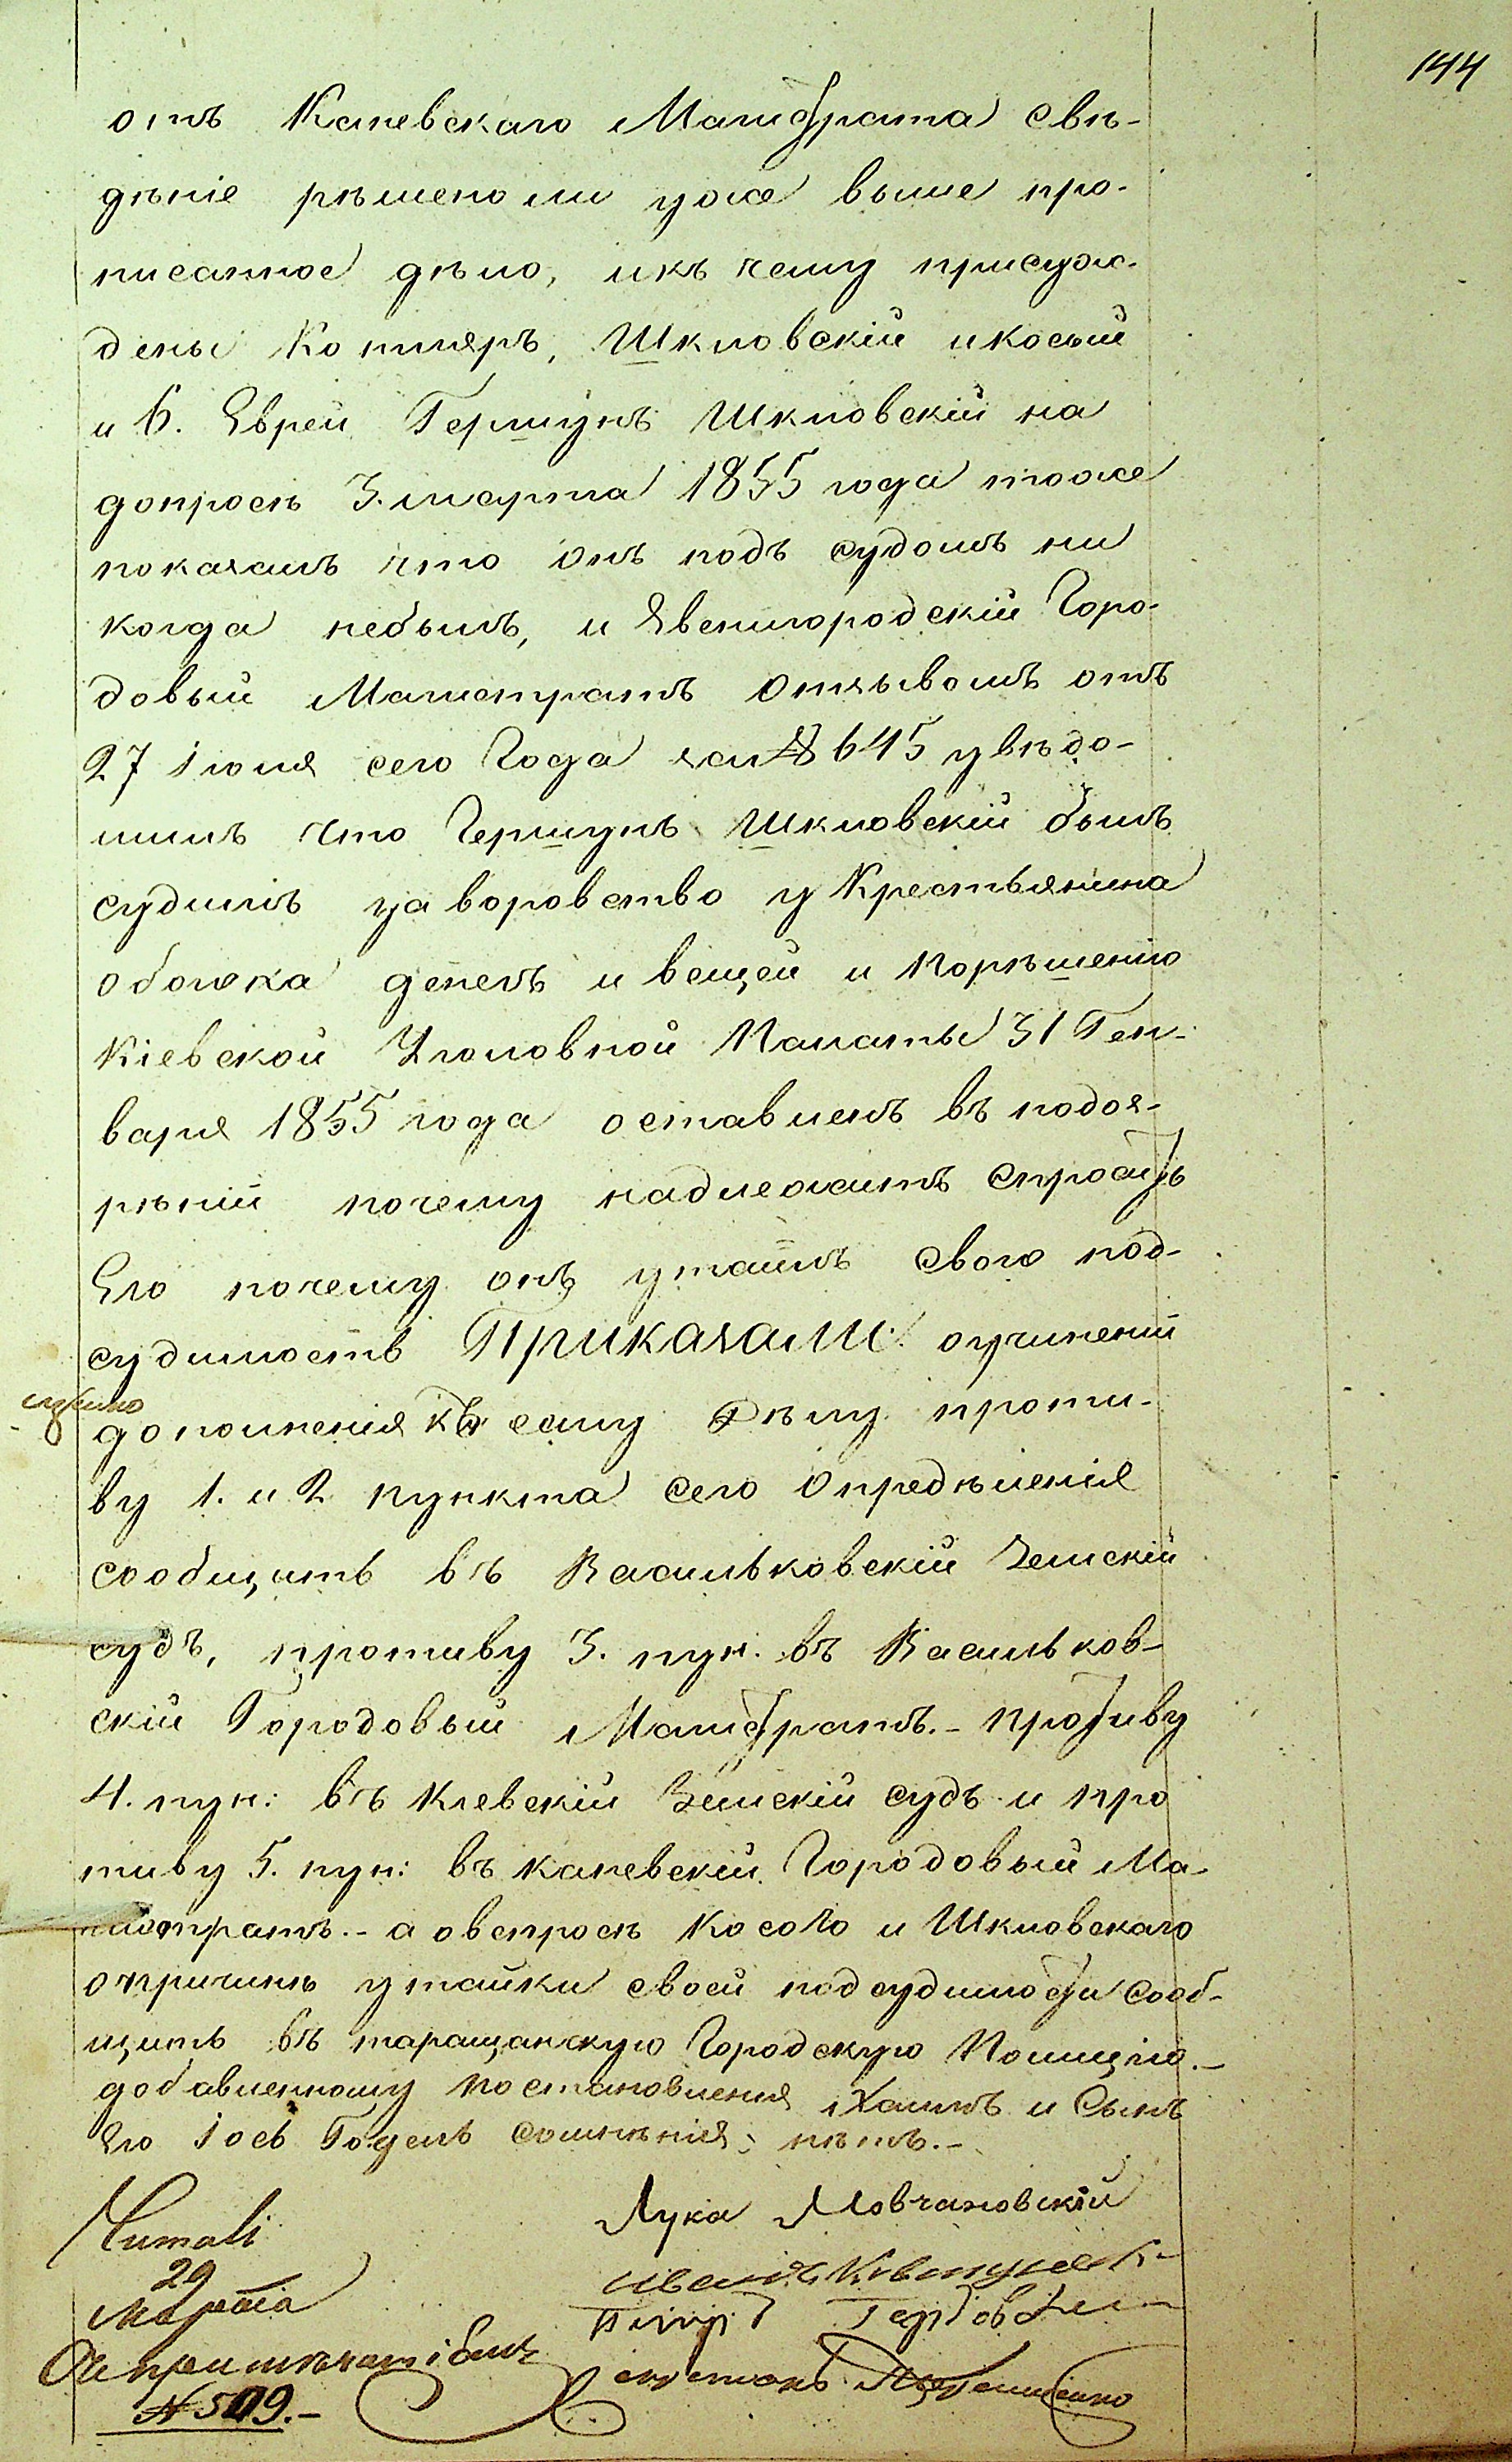 144
отъ Каневскаго Магистрата свѣ-
дѣніе рѣшено ли уже выше про-
писанное дѣло, икъ чему присуж-
дены Котляръ, Шкловскій икосый
и 6. Еврей Гершунъ Шкловскій на
допросѣ 3. марта 1855 года тоже
показалъ что онъ подъ судомъ ни
когда небылъ, и Звенигородскій Горо-
довый Магистратъ отзывомъ отъ
27 іюля сего Года за № 645 увѣдо-
милъ что Гершунъ Шкловскій былъ
судимъ за воровство у Крестьянина
денегъ и вещей и порѣшенію
Кіевской Уголовной Палаты 31 Ген-
варя 1855 года оставленъ въ подоз-
рѣніи почему надлежитъ спросить
Его почему онъ утаилъ свою под-
судимость Приказали: очиненіи
дополненія къ сему Дѣлу проти-
ву 1. и 2 пункта сего Опредѣленія
сообщить въ Васильковскій Земскій
судъ, противу 3. пун. въ Васильков-
скій Городовый Магистратъ.- противу
4. пун: въ Кіевскій Земскій судъ и про
тиву 5. пун: въ Каневскій Городовый Ма-
гистратъ.- а овспросѣ Косого и Шкловскаго
опричинѣ утайки своей подсудимости сооб-
щить въ таращанскую Городскую Полицію.-
добавленному постановленія Хаимъ и Сынъ
Его Іось Годель сомнѣнія нѣтъ.-
Лука Мовчановскій
Читалъ
29
Марта
Иванъ
Петръ
№ 509.-